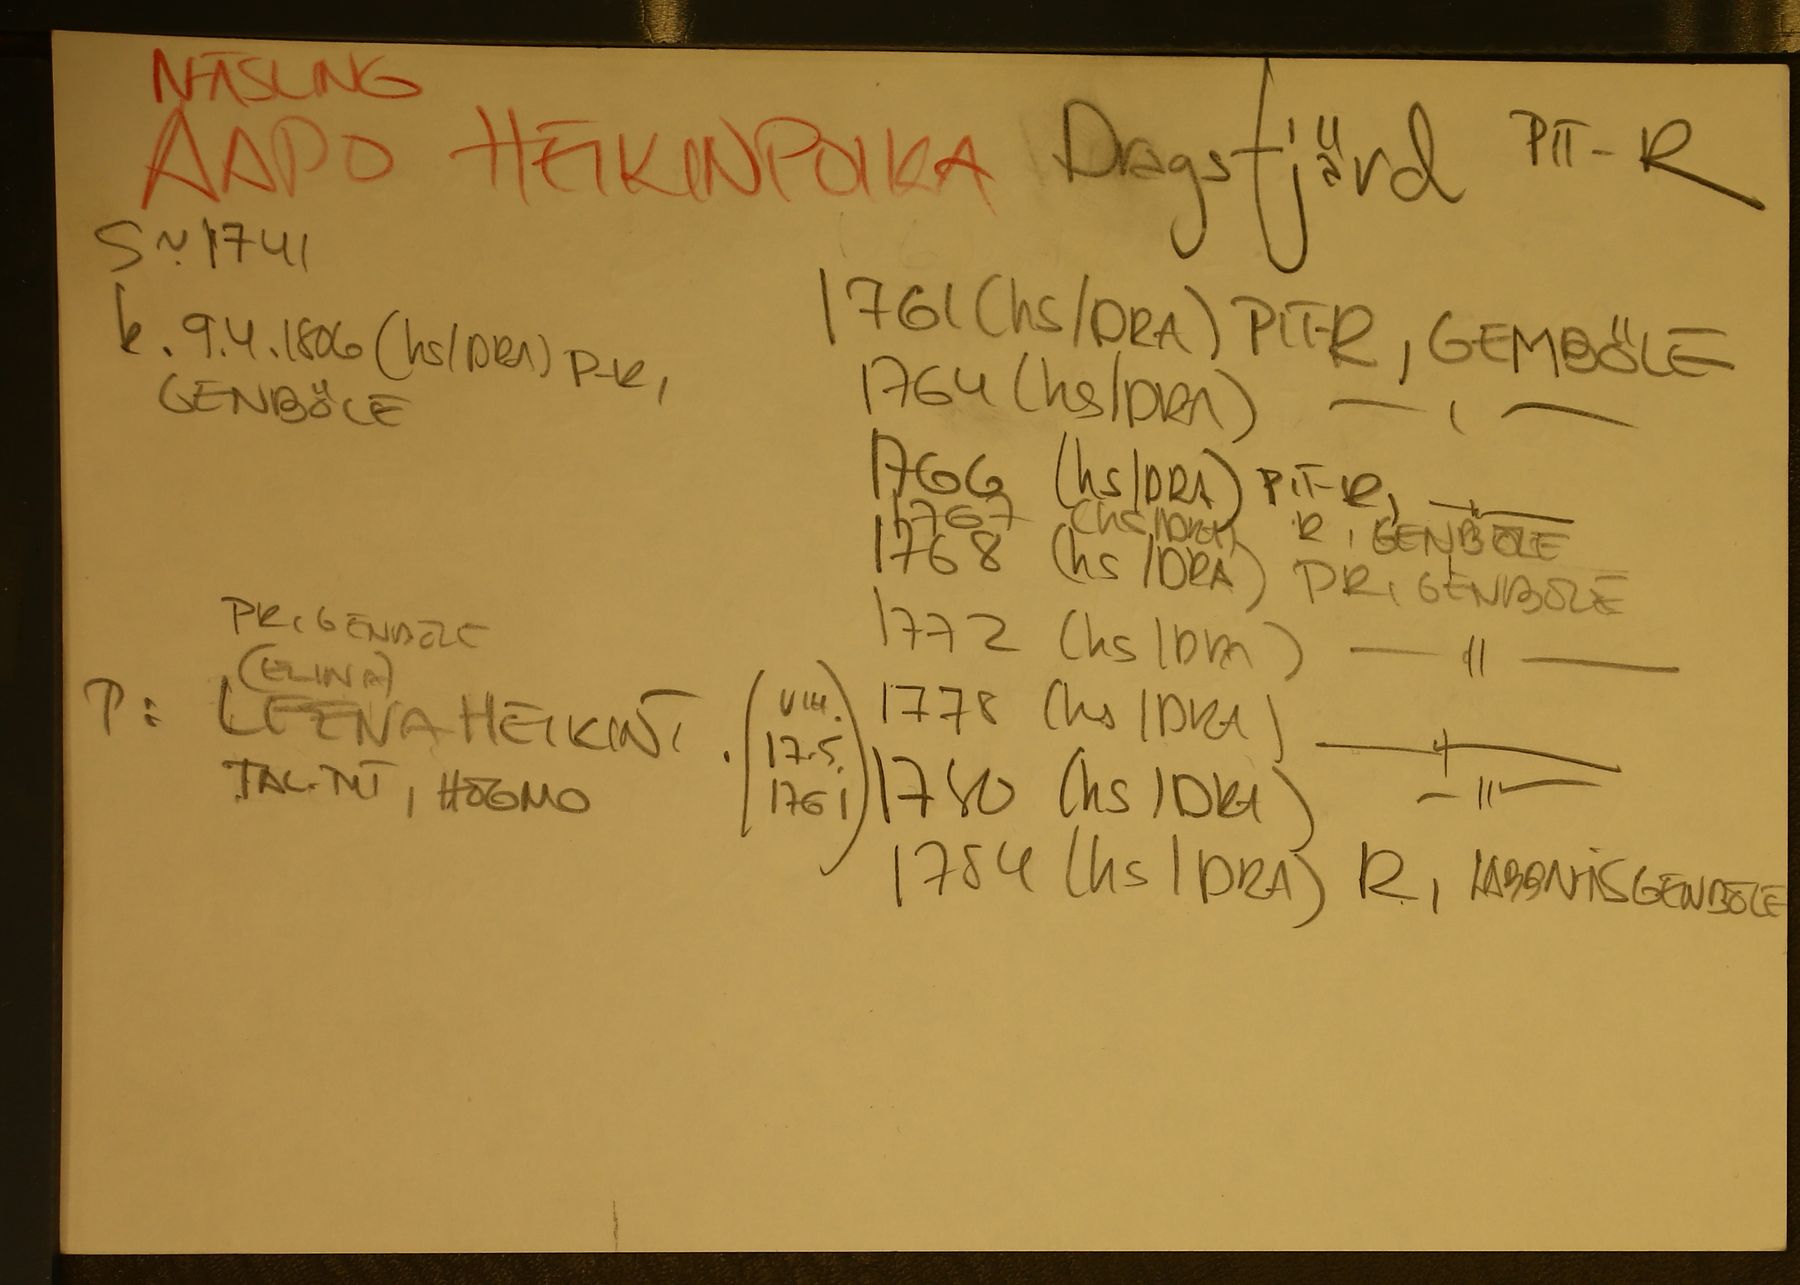 NÄSLING
AAPO HEIKINPOIKA Dragsfjärd PIT-R
S~ 1741
k. 9.4.1806 (hs/DRA) P-R,
GENBÖLE
1761 (hs/DRA) PIT-R, GEMBÖLE
1764 (hs/DRA) — , —
1766 (hs/DRA) PIT-R, — " —
1767 (hs/DRA) R, GENBÖLE
1768 (hs/DRA) PR, GENBÖLE
1772 (hs/DRA) — " —
1778 (hs/DRA) — " —
1780 (hs/DRA) — " —
1784 (hs/DRA) R, LABBNÄSGENBÖLE
PR, GENBÖLE
(ELINA)
P: LEENA HEIKINT. (VIH. 17.5. 1761)
TAL.TYT, HÖGMO